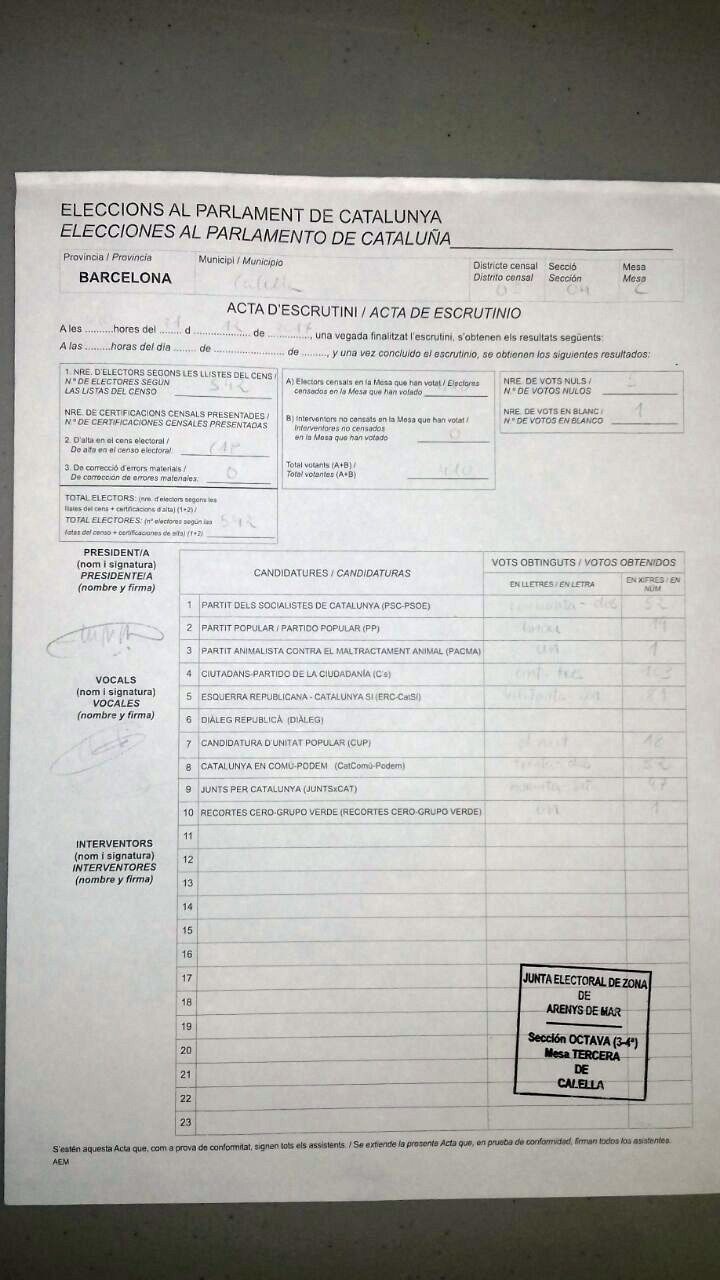 ELECCIONS AL PARLAMENT DE CATALUNYA
ELECCIONES AL PARLAMENTO DE CATALUÑA
Provincia / Provincia
BARCELONA
Municipi / Municipio
Calella
Districte censal
Distrito censal
Secció
Sección
04
Mesa
Mesa
C
ACTA D'ESCRUTINI / ACTA DE ESCRUTINIO
A les .........hores del 21 d 12 de 2017, una vegada finalitzat l'escrutini, s'obtenen els resultats següents:
A las .........horas del día ........ de ........................ de ........, y una vez concluido el escrutinio, se obtienen los siguientes resultados:
1. NRE. D'ELECTORS SEGONS LES LLISTES DEL CENS /
N.º DE ELECTORES SEGÚN
LAS LISTAS DEL CENSO
542
NRE. DE CERTIFICACIONS CENSALS PRESENTADES /
N.º DE CERTIFICACIONES CENSALES PRESENTADAS
2. D'alta en el cens electoral /
De alta en el censo electoral:
3. De correcció d'errors materials /
De corrección de errores materiales:
0
TOTAL ELECTORS: (nre. d'electors segons les
llistes del cens + certificacions d'alta) (1+2) /
TOTAL ELECTORES: (nº electores según las
listas del censo + certificaciones de alta) (1+2)
542
A) Electors censats en la Mesa que han votat / Electores
censados en la Mesa que han votado
B) Interventors no censats en la Mesa que han votat /
Interventores no censados
en la Mesa que han votado
0
Total votants (A+B) /
Total votantes (A+B)
410
NRE. DE VOTS NULS /
N.º DE VOTOS NULOS
NRE. DE VOTS EN BLANC /
N.º DE VOTOS EN BLANCO
1
PRESIDENT/A
(nom i signatura)
PRESIDENTE/A
(nombre y firma)
VOCALS
(nom i signatura)
VOCALES
(nombre y firma)
INTERVENTORS
(nom i signatura)
INTERVENTORES
(nombre y firma)
CANDIDATURES / CANDIDATURAS
VOTS OBTINGUTS / VOTOS OBTENIDOS
EN LLETRES / EN LETRA
EN XIFRES / EN NÚM
1 PARTIT DELS SOCIALISTES DE CATALUNYA (PSC-PSOE) cinquanta-dos 52
2 PARTIT POPULAR / PARTIDO POPULAR (PP) 19
3 PARTIT ANIMALISTA CONTRA EL MALTRACTAMENT ANIMAL (PACMA) un 1
4 CIUTADANS-PARTIDO DE LA CIUDADANÍA (C's) cent tres 103
5 ESQUERRA REPUBLICANA - CATALUNYA SÍ (ERC-CatSÍ) vuitanta un 81
6 DIÀLEG REPUBLICÀ (DIÀLEG)
7 CANDIDATURA D'UNITAT POPULAR (CUP) 18
8 CATALUNYA EN COMÚ-PODEM (CatComú-Podem)
9 JUNTS PER CATALUNYA (JUNTSxCAT) 97
10 RECORTES CERO-GRUPO VERDE (RECORTES CERO-GRUPO VERDE) un 1
11
12
13
14
15
16
17
18
19
20
21
22
23
JUNTA ELECTORAL DE ZONA
DE
ARENYS DE MAR
Sección OCTAVA (3-4ª)
Mesa TERCERA
DE
CALELLA
S'estén aquesta Acta que, com a prova de conformitat, signen tots els assistents. / Se extiende la presente Acta que, en prueba de conformidad, firman todos los asistentes.
AEM